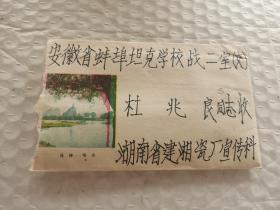 安徽省蚌埠坦克学校战二室(大)
杜兆良同志收
湖南省建湘瓷厂宣传科